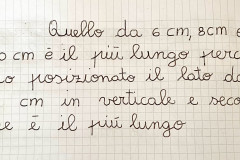 Quello da 6 cm, 8cm e
0 cm é il piú lungo perc
o posizionato il lato da
cm in verticale e seco
e é il piú lungo